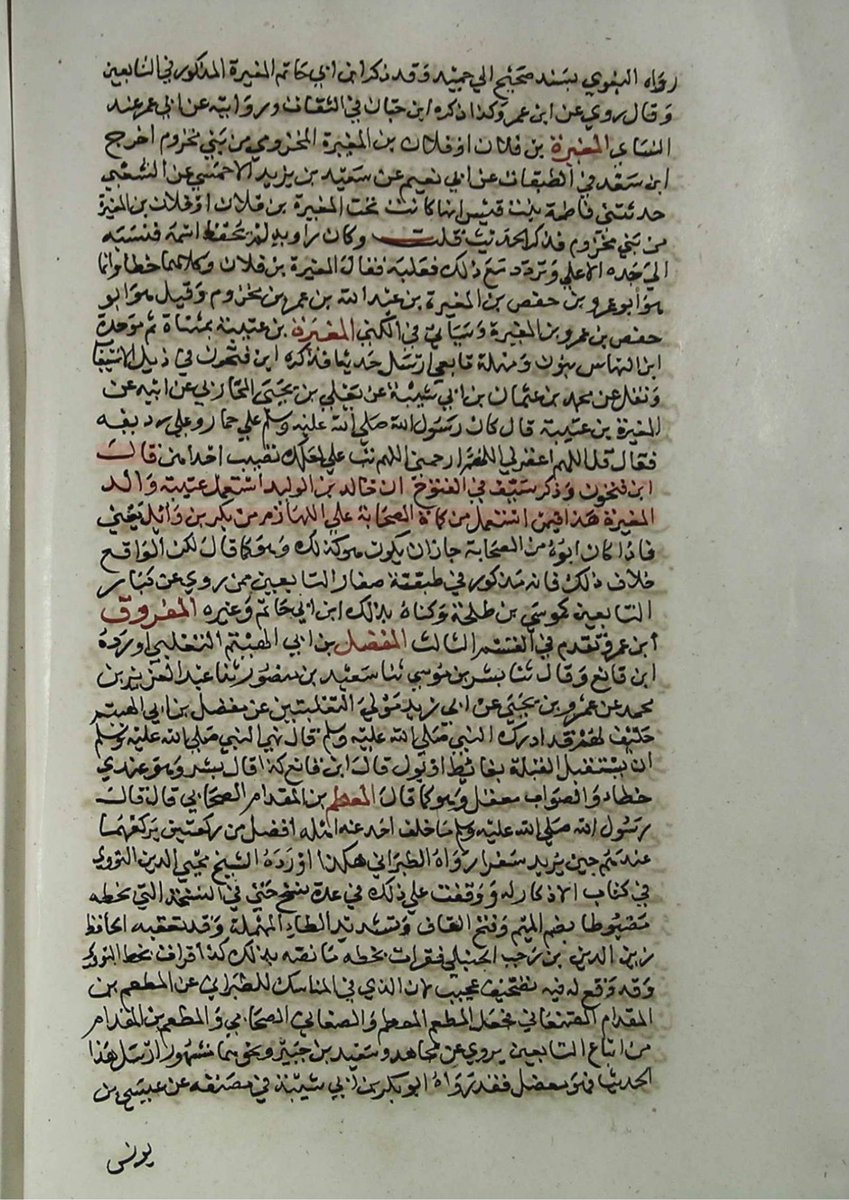 رواه البغوي بسند صحيح الي حميد وقد ذكر ابن ابي حاتم المغيرة المذكور في التابعين
وقال روي عن ابن عمر وكذا ذكره ابن حبان في الثقات وروايته عن ابي عمر عند
النساي المغيرة بن فلان او فلان بن المغيرة المخزومي من بني مخزوم اخرج
ابن سعد في الطبقات عن ابي نعيم عن سعيد بن يزيد الاحمسي عن الشعبي
حدثتني فاطمة بنت قيس انها كانت تحت المغيرة بن فلان او فلان بن المغيرة
من بني مخزوم فذكر الحديث قلت وكان راويه لم يحفظ اسمه فنسبه
الي جده الاعلي وتردد مع ذلك فقلبه فقال المغيرة بن فلان وكلاهما خطا وانما
هو ابو عمرو بن حفص بن المغيرة بن عبد الله بن عمر بن مخزوم وقيل هو ابو
حفص بن عمرو بن المغيرة وسياتي في الكني المغيرة بن عتيبة بمثناة ثم موحدة
ابن النهاس بنون ومهملة تابعي ارسل حديثا فذكره ابن فتحون في ذيل الاستيعا
ونقل عن محمد بن عثمان بن ابي شيبة عن يعلي بن يحيي المحاربي عن ابيه عن
المغيرة بن عتيبة قال كان رسول الله صلي الله عليه وسلم علي حمار وعلي رديفه
فقال قل اللهم اغفر لي اللهم ارحمني اللهم تب علي لعلك تصيب احدا من قال
ابن فتحون وذكر سيف في الفتوح ان خالد بن الوليد استعمل عتيبة والد
المغيرة هذا فيمن استعمل من كماة الصحابة علي اللهازم من بكر بن وائل يعني
فاذا كان ابوه من الصحابة جاز ان يكون هو كذلك وهو كما قال لكن الواقع
خلاف ذلك فانه مذكور في طبقة صغار التابعين ممن روي عن كبار
التابعين كموسي بن طلحة وكناه بذلك ابن ابي حاتم وغيره المفروق
ابن عمرو تقدم في القسم الثالث المفضل بن ابي الهيثم التغلبي اورده
ابن قانع وقال ثنا بشر بن موسي ثنا سعيد بن منصور ثنا عبد العزيز بن
محمد عن عمرو بن يحيي عن ابي زيد مولي التغلبتين عن مفضل بن ابي الهيثم
حليف لهم قد ادرك النبي صلي الله عليه وسلم قال نهي النبي صلي الله عليه وسلم
ان يستقبل القبلة بغائط او بول قال ابن قانع كذا قال بشر وهو عندي
خطاء والصواب معقل وهو كما قال المعطم بن المقدام الصحابي قال قال
رسول الله صلي الله عليه وسلم ما خلف احد عند اهله افضل من ركعتين يركعهما
عندهم حين يريد سفرا رواه الطبراني هكذا اورده الشيخ محيي الدين النووي
في كتاب الاذكار له ووقفت علي ذلك في عدة نسخ حتي في النسخة التي بخطه
مضبوطا بضم الميم وفتح القاف وتشديد الطاء المهملة وقد تعقبه الحافظ
زين الدين بن رجب الحنبلي فقرات بخطه ما نصه بذلك كذا قراف بخط النووي
وقد وقع له فيه تصحيف عجيب لان الذي في المناسك للطبراني عن المطعم بن
المقدام الصنعاني فجعل المطعم المعطم والصغاني الصحابي والمطعم بن المقدام
من اتباع التابعين يروي عن مجاهد وسعيد بن جبير ونحوهما مشهور ارسل هذا
الحديث فهو معضل فقد رواه ابو بكر بن ابي شيبة في مصنفه عن عيسي بن
يونس